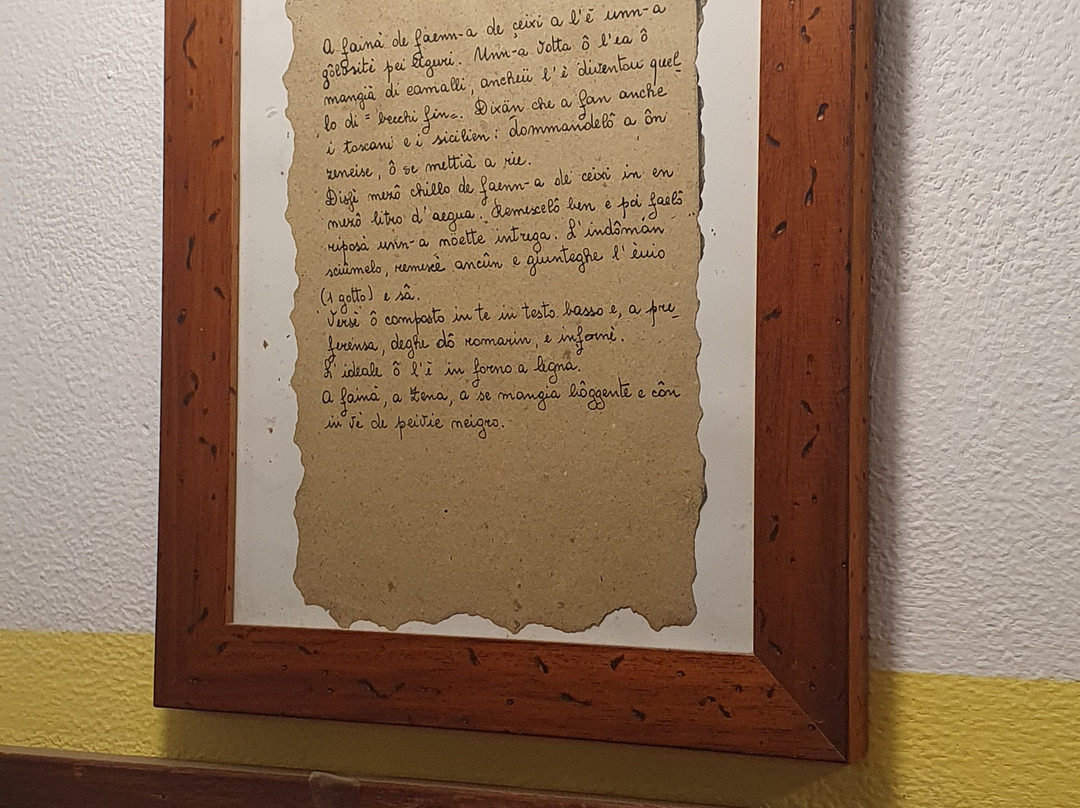 A fainà de faenn-a de çeixi a l'é unn-a
gôlositè pei liguri. Unn-a votta ô l'ea ô
mangiâ di camalli, ancheü l'è diventou quel_
lo di = becchi fin=. Dixàn che a fan anche
i toscani e i sicilien: dommandelô a ôn
zeneise, ô se mettià a rie.
Disfè mezô chillo de faenn-a de ceixi in en
mezô litro d'aegua. Remescelô ben e poi faelô
riposà unn-a nöette intrega. L'indômàn
sciûmelo, remescè ancûn e giunteghe l'êuio
(1 gotto) e sâ.
Versè ô composto in te in testo basso e, a pre_
ferensa, deghe dô romarin, e infornè.
L'ideale ô l'è in forno a legna.
A fainà, a Zena, a se mangia bôggente e côn
in vè de peivie neigro.